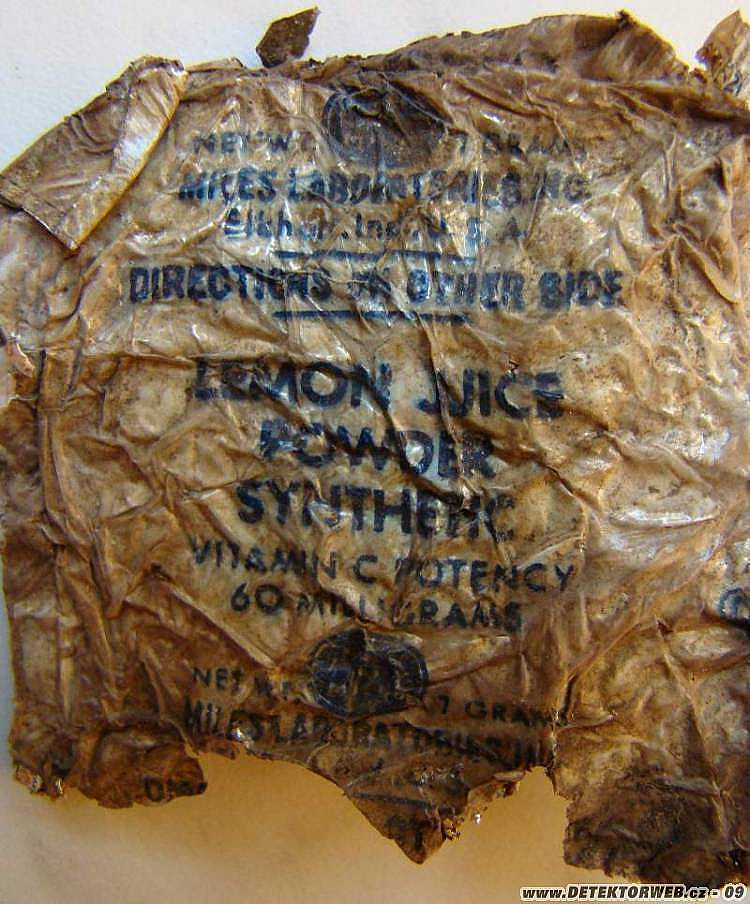 NET W 7 GRAMS
MILES LABORATORIES, INC.
Elkhart, Ind., U.S.A.
DIRECTIONS ON OTHER SIDE
LEMON JUICE
POWDER
SYNTHETIC
VITAMIN C POTENCY
60 MILLIGRAMS
NET WT. 7 GRAMS
MILES LABORATORIES IN
www.DETEKTORWEB.cz - 09